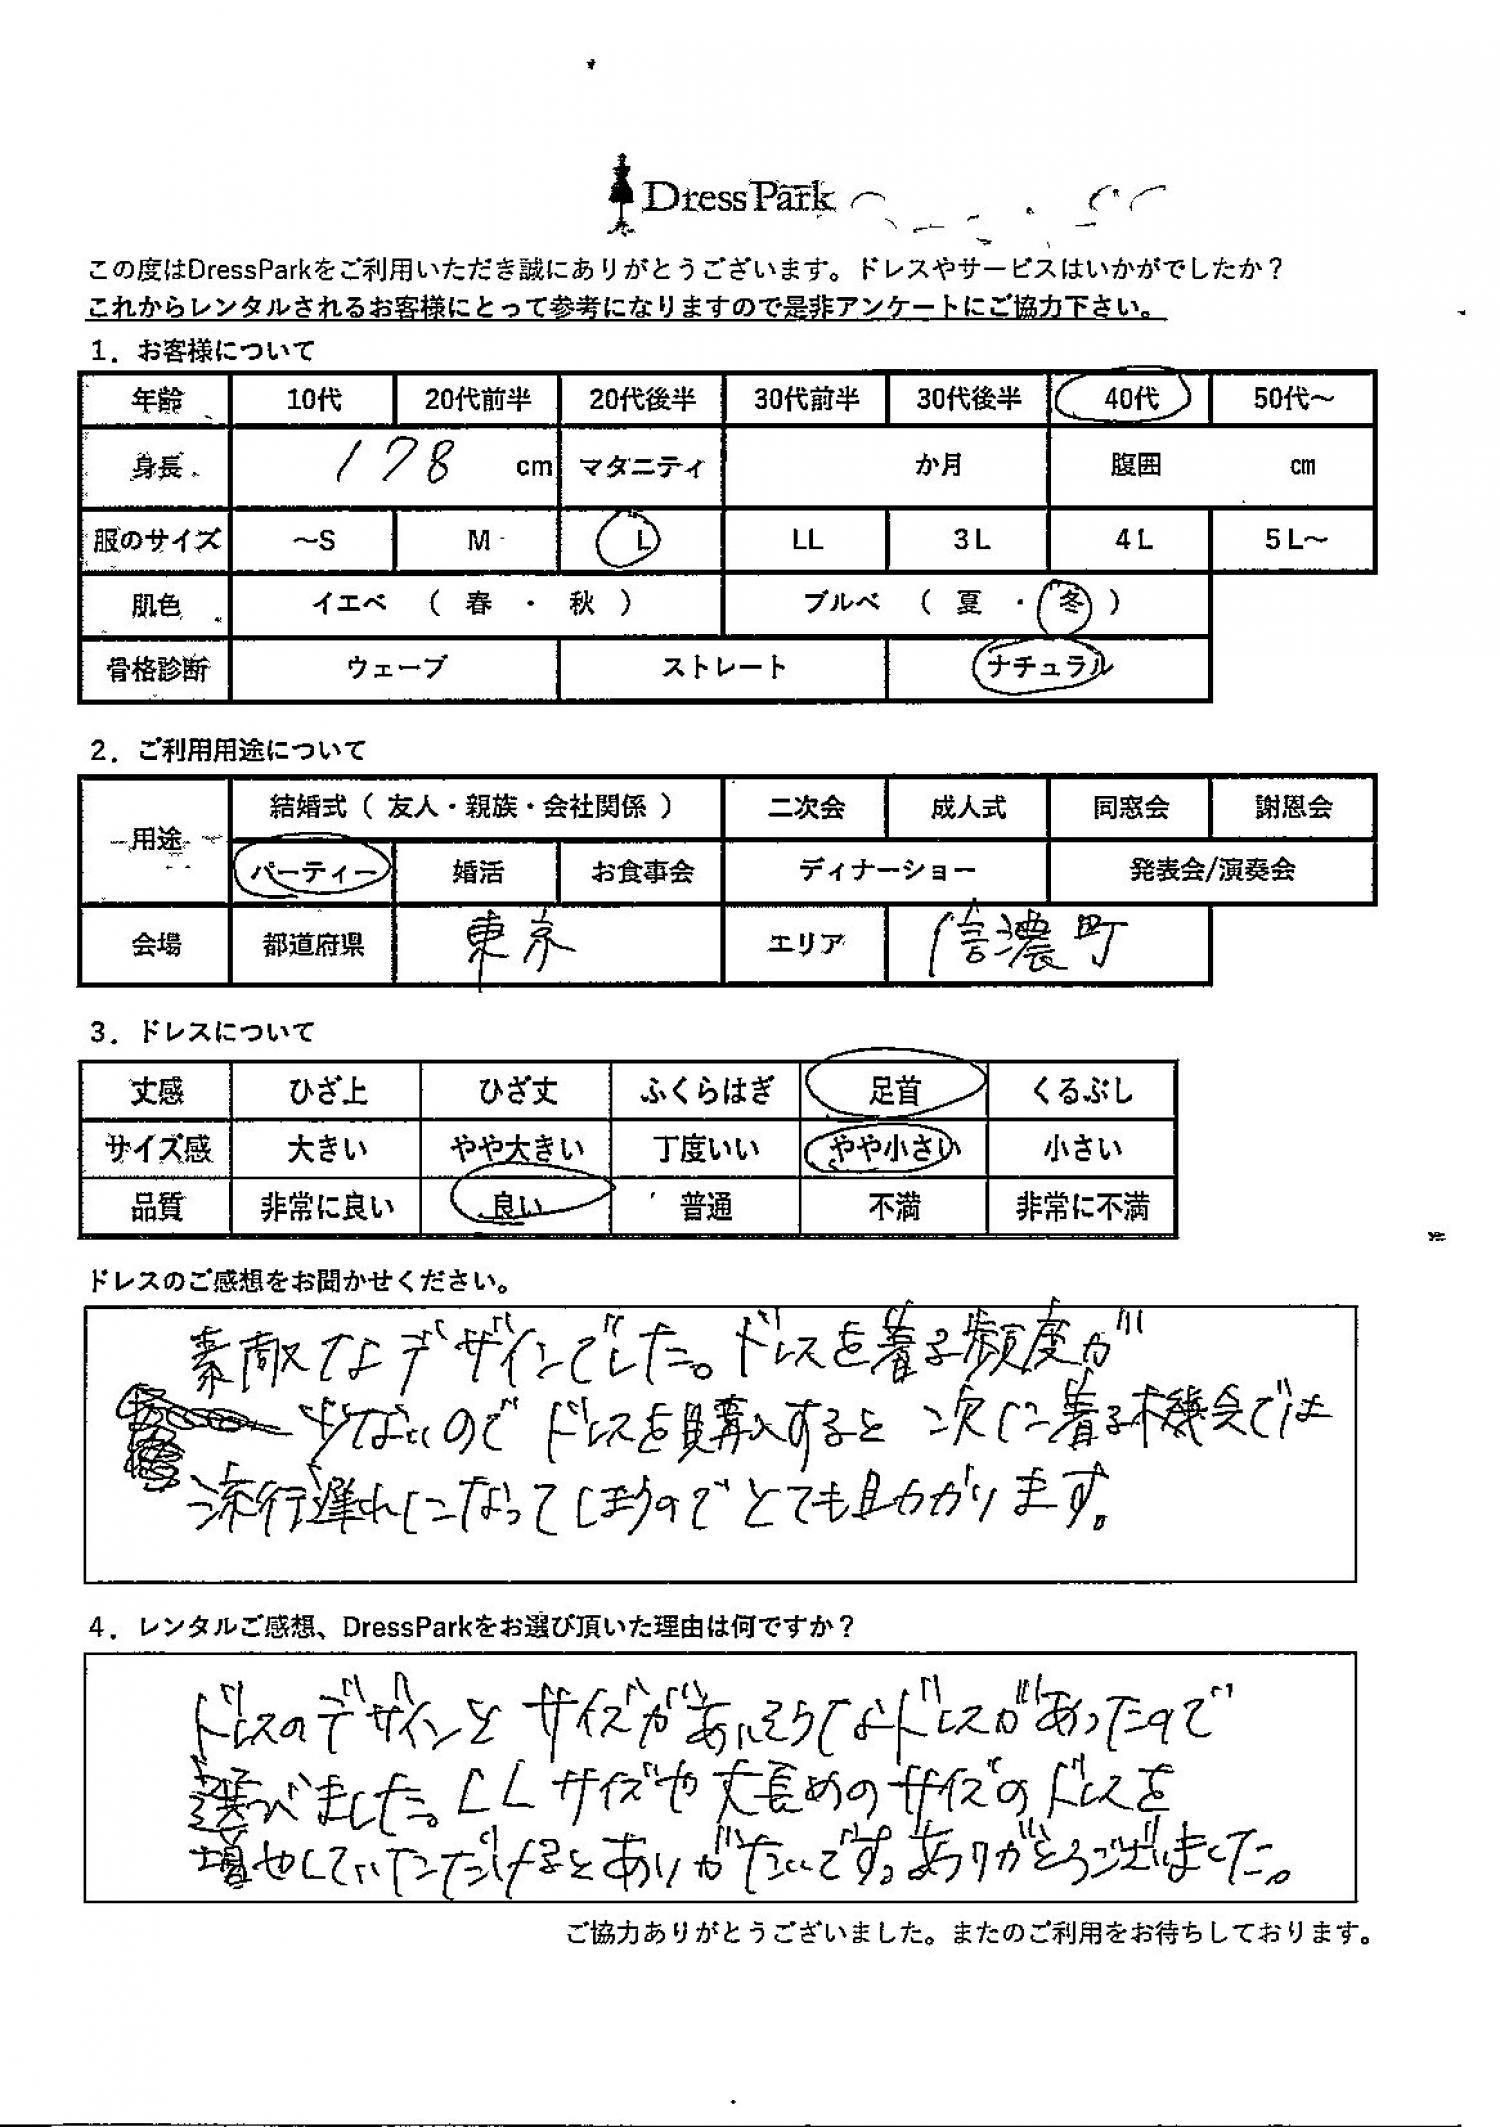 DressPark
この度はDressParkをご利用いただき誠にありがとうございます。ドレスやサービスはいかがでしたか？
これからレンタルされるお客様にとって参考になりますので是非アンケートにご協力下さい。
1．お客様について
年齢 10代 20代前半 20代後半 30代前半 30代後半 40代 50代～
身長 178 cm マタニティ か月 腹囲 cm
服のサイズ ～S M L LL 3L 4L 5L～
肌色 イエベ （ 春 ・ 秋 ） ブルベ （ 夏 ・ 冬 ）
骨格診断 ウェーブ ストレート ナチュラル
2．ご利用用途について
用途 結婚式（ 友人・親族・会社関係 ） 二次会 成人式 同窓会 謝恩会
パーティー 婚活 お食事会 ディナーショー 発表会/演奏会
会場 都道府県 東京 エリア 信濃町
3．ドレスについて
丈感 ひざ上 ひざ丈 ふくらはぎ 足首 くるぶし
サイズ感 大きい やや大きい 丁度いい やや小さい 小さい
品質 非常に良い 良い 普通 不満 非常に不満
ドレスのご感想をお聞かせください。
素敵なデザインでした。ドレスを着る頻度が
少ないのでドレスを購入すると次に着る機会では
流行遅れになってしまうのでとても助かります。
4．レンタルご感想、DressParkをお選び頂いた理由は何ですか？
ドレスのデザインとサイズがあいそうなドレスがあったので
選べました。LLサイズや丈長めのサイズのドレスを
増やしていただけるとありがたいです。ありがとうございました。
ご協力ありがとうございました。またのご利用をお待ちしております。